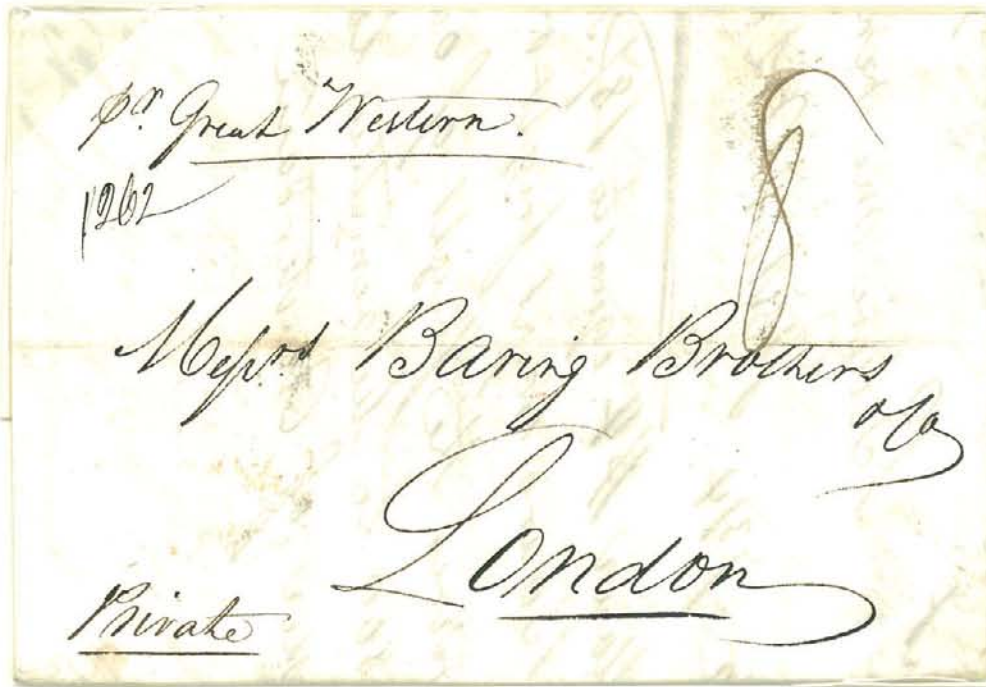 pr. Great Western.
1262
8
Messrs Baring Brothers
& Co
London
Private